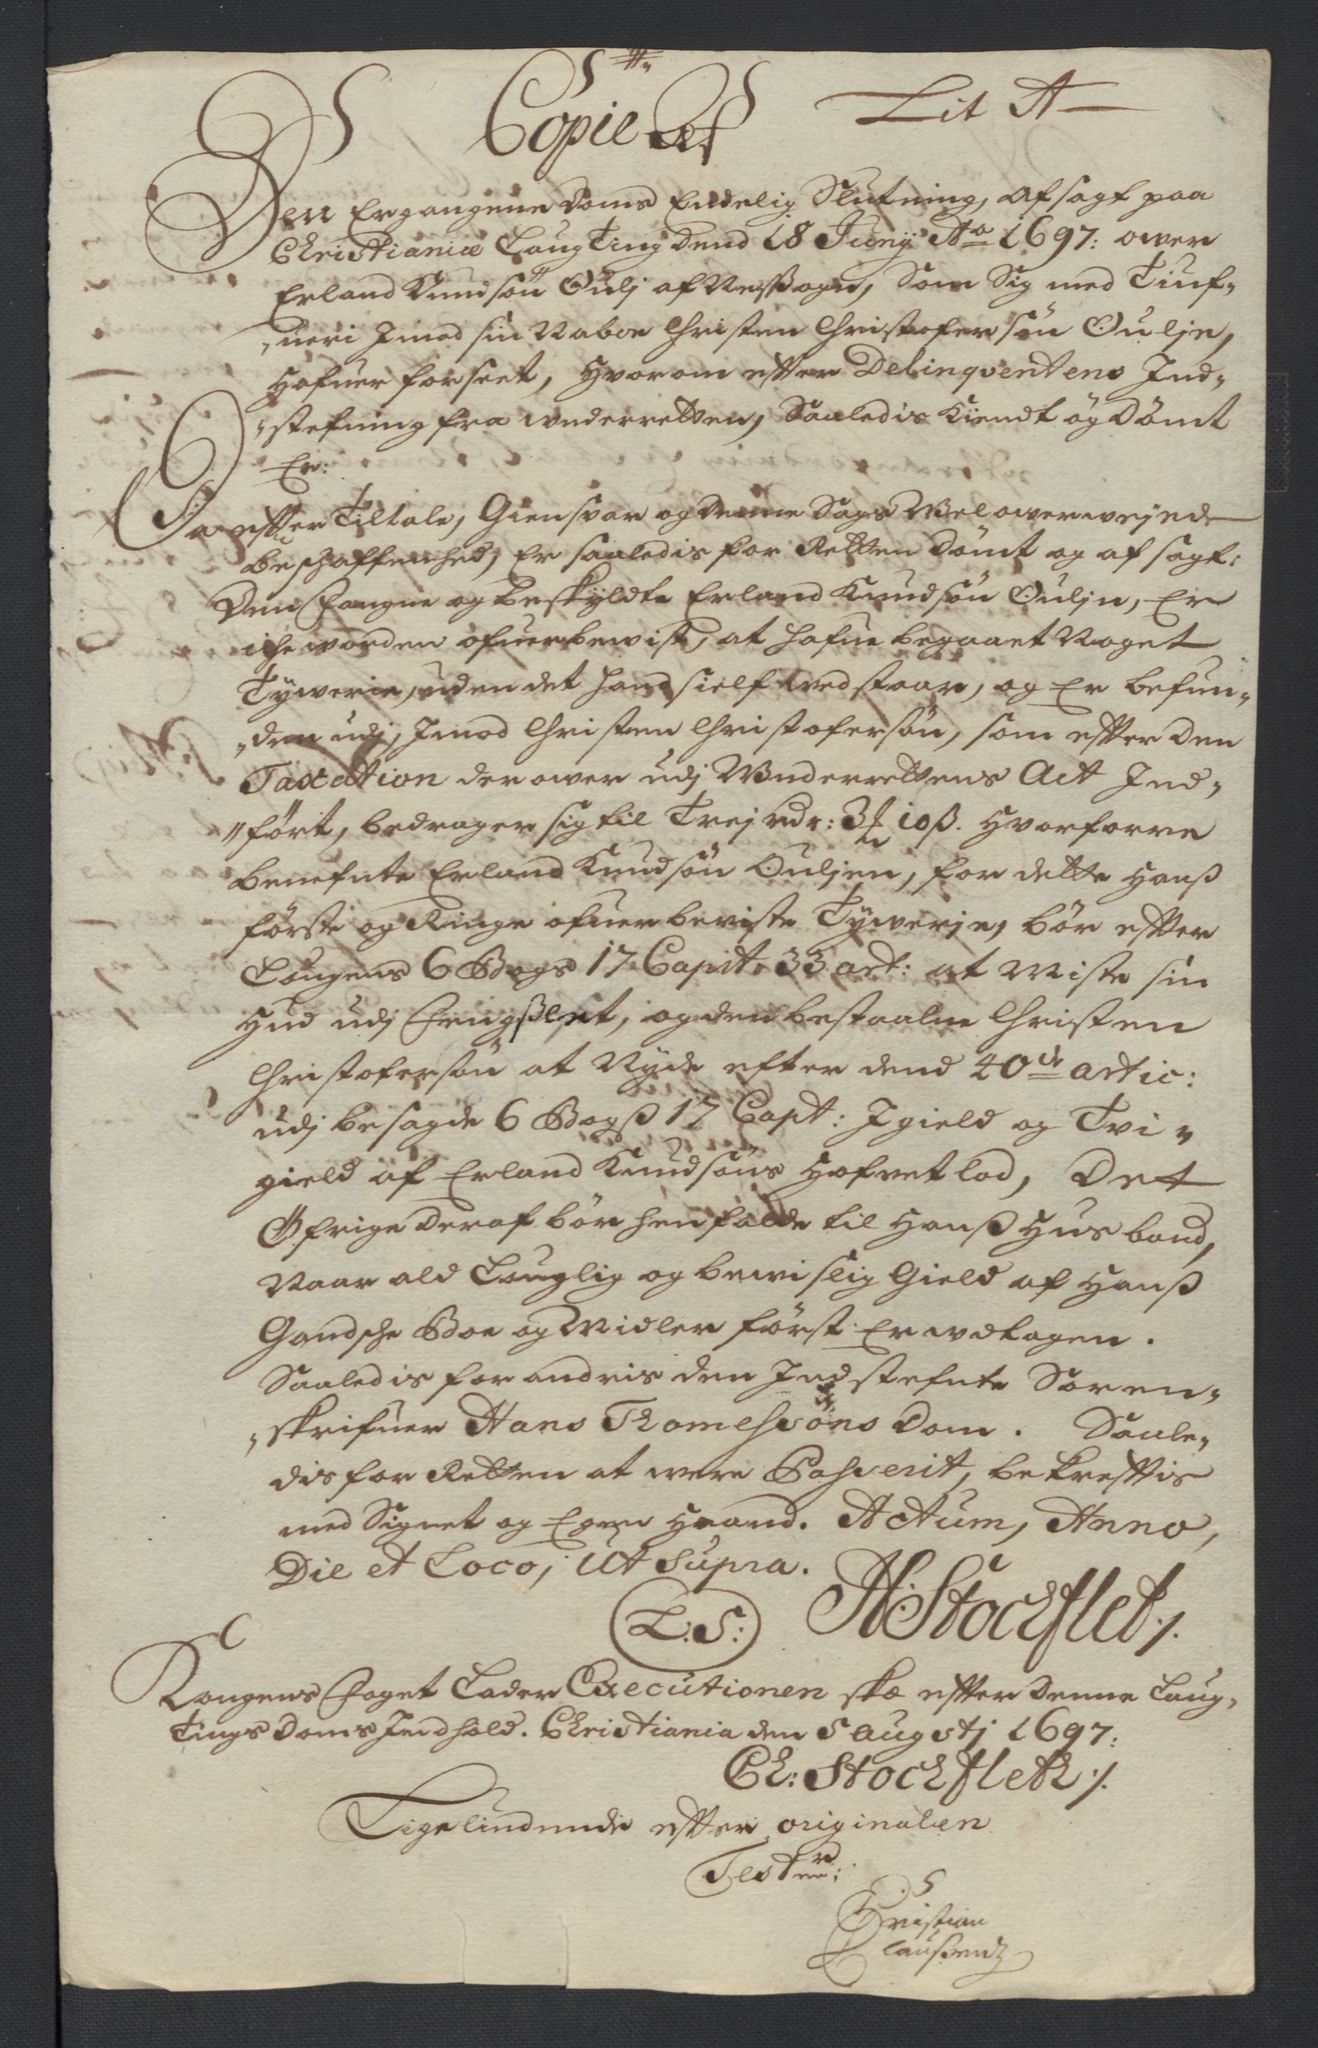 Lit A
Copie Af
Den Ergangene Doms Endelig Slutning, afsagt paa
Christianiæ LaugTing dend 18 Junij Ao 1697: ower
Erland Knudsøn Oulj af Neßsogn, Som Sig med Tiuf-
„veri Imod sin Naboe Christen Christofersøn Oulje,
Hafuer forseet, Hvorom effter Delinqventens Ind-
„stefning fra underretten, Saaledis Kiendt og Dømt
Er:
Da effter Tiltale, Giensvar og denne Sags Wel owerwejede
beschaffenhed, Er saaledis for Retten Dømt og afsagt:
Den Fangne og beskyldte Erland Knudsøn Ouljn, Er
iche worden ofuerbewist, at hafue begaaet Noget
Tywerie, uden det hand sielf wedstaar, og Er befun-
„den udj, Imod Christen Christofersøn, som effter den
Taxation derower udj Underrettens Act Ind-
„ført, bedrager sig til Trej rdr: 3 10 ß. Hvorforre
benefnte Erland Knudsøn Ouljen, for dette Hanß
første og Ringe ofuerbeviste Tywerje, bør effter
Lougens 6 Bogs 17 Capit. 33 art: at Miste sin
Hud udj Fengßlet, og den bestaalne Christen
Christofersøn at Nyde efter dend 40de artic:
udj besagde 6 Bogß 17 Capt: Igield og Tvi-
gield af Erland Knudsøns Hofuetlod, Det
Øfrige deraf bør henfalde til Hanß Husbond,
Naar ald Louglig og bewislig Gield af Hanß
Gandsche Boe og Midler først Er udtagen.
Saaledis forandris den Indstefnte Soren-
„skrifuer Hans Thomesøns Dom. Saale-
dis for Retten at were Passerit, bekrefftis
med Signet og Egen Haand. Actum, Anno,
Die et Loco, ut Supra.
L.S: H Stockflet ./.
Kongens Foget Lader Executionen ske effter denne Laug-
Tings Doms Indhold. Christiania den 5 Augustj 1697:
Ch: Stockfleth ./.
Ligeliudende effter originalen
Tester:
Christian
Claußen